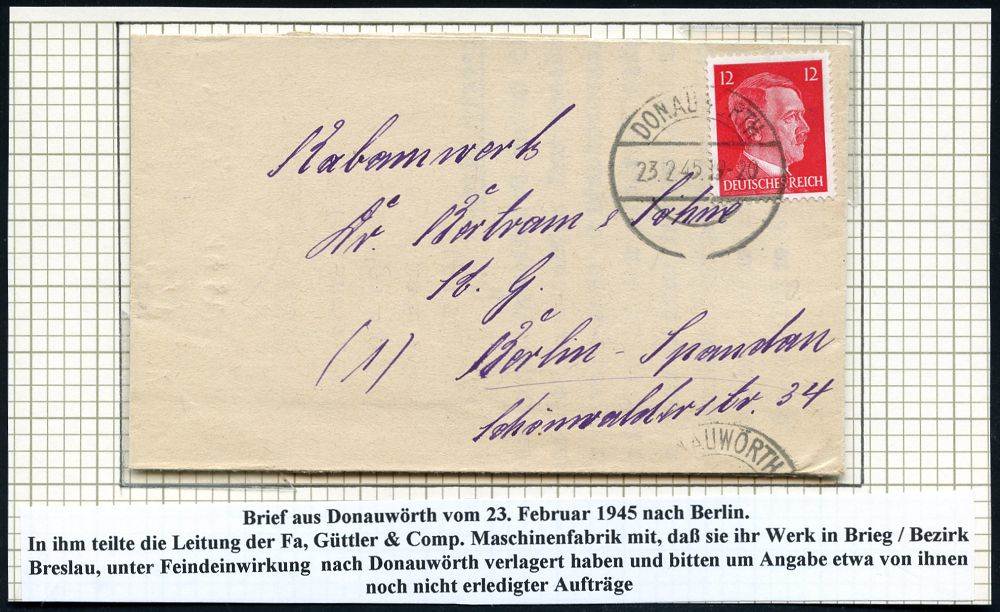 12 12
DEUTSCHES REICH
DONAUWÖRTH
23.2.45.19-20
Rabamwerk
Dr. Bertram & Söhne
K. G.
(1) Berlin - Spandau
Schönwalderstr. 34
NAUWÖRTH
Brief aus Donauwörth vom 23. Februar 1945 nach Berlin.
In ihm teilte die Leitung der Fa, Güttler & Comp. Maschinenfabrik mit, daß sie ihr Werk in Brieg / Bezirk
Breslau, unter Feindeinwirkung nach Donauwörth verlagert haben und bitten um Angabe etwa von ihnen
noch nicht erledigter Aufträge